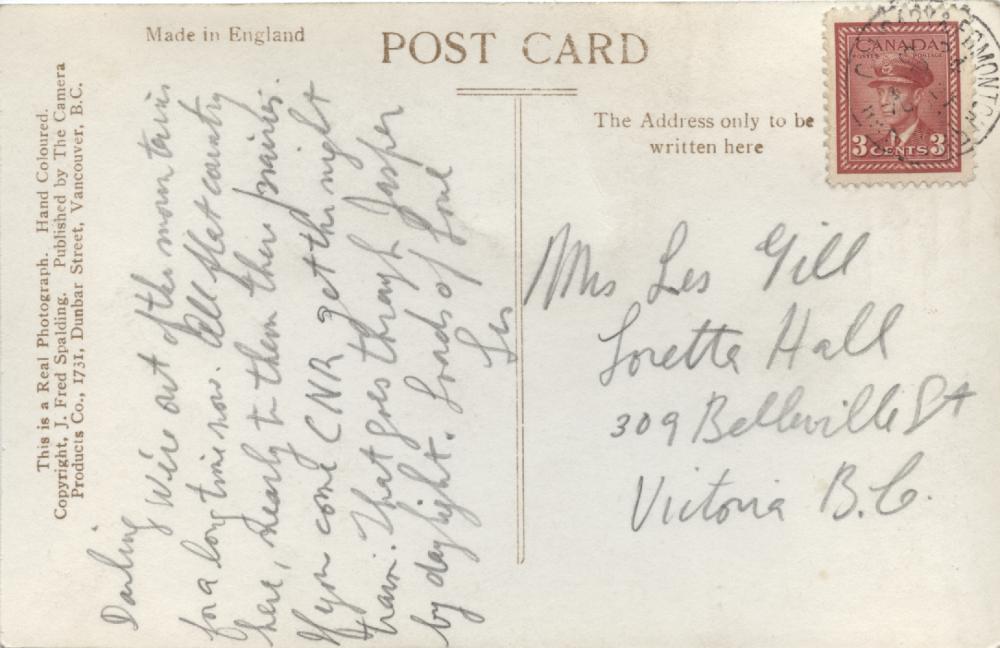 Made in England
POST CARD
The Address only to be
written here
This is a Real Photograph. Hand Coloured.
Copyright, J. Fred Spalding. Published by The Camera
Products Co., 1731, Dunbar Street, Vancouver, B.C.
Darling We're out of the mountains
for a long time now. All flat country
here, nearly to them there prairies.
If you come CNR get the night
train. That goes through Jasper
by daylight. Loads of Love
Les
Mrs Les Gill
Loretta Hall
309 Belleville St
Victoria B.C.
CANADA
POSTES POSTAGE
3 CENTS 3
CALGARY & EDMONTON